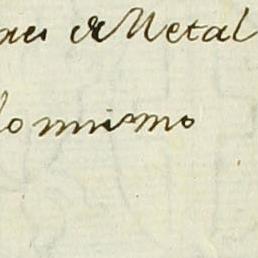 de Metal
lo mismo